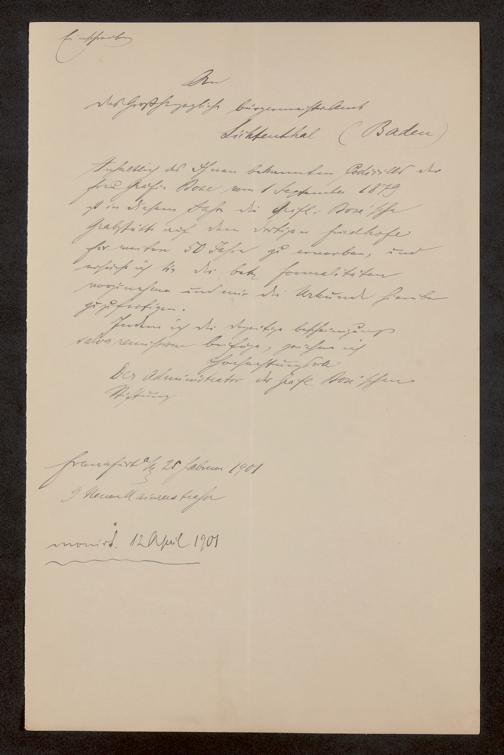 Einschreiben
An
das Großherzogliche Bürgermeisteramt
Lichtenthal (Baden)
Inhaltlich des Ihnen bekannten Codicills der
Frau Gräfin Bose, vom 1 September 1879
ist in diesem Jahre die Gräfl. Bose'sche
Grabstätte auf dem dortigen Friedhofe
für weitere 50 Jahre zu erwerben, und
ersuche ich Sie die betr. Formalitäten
vorzunehmen und mir die Urkunde hierüber
zuzufertigen.
Indem ich die derzeitige Bescheinigung
salva remissione beifüge, zeichne ich
Hochachtungsvoll
Der Administrator der Gräfl. Bose'schen
Stiftung
Frankfurt a/M 25 Februar 1901
9 Neue Mainzerstraße
monirt. 12 April 1901